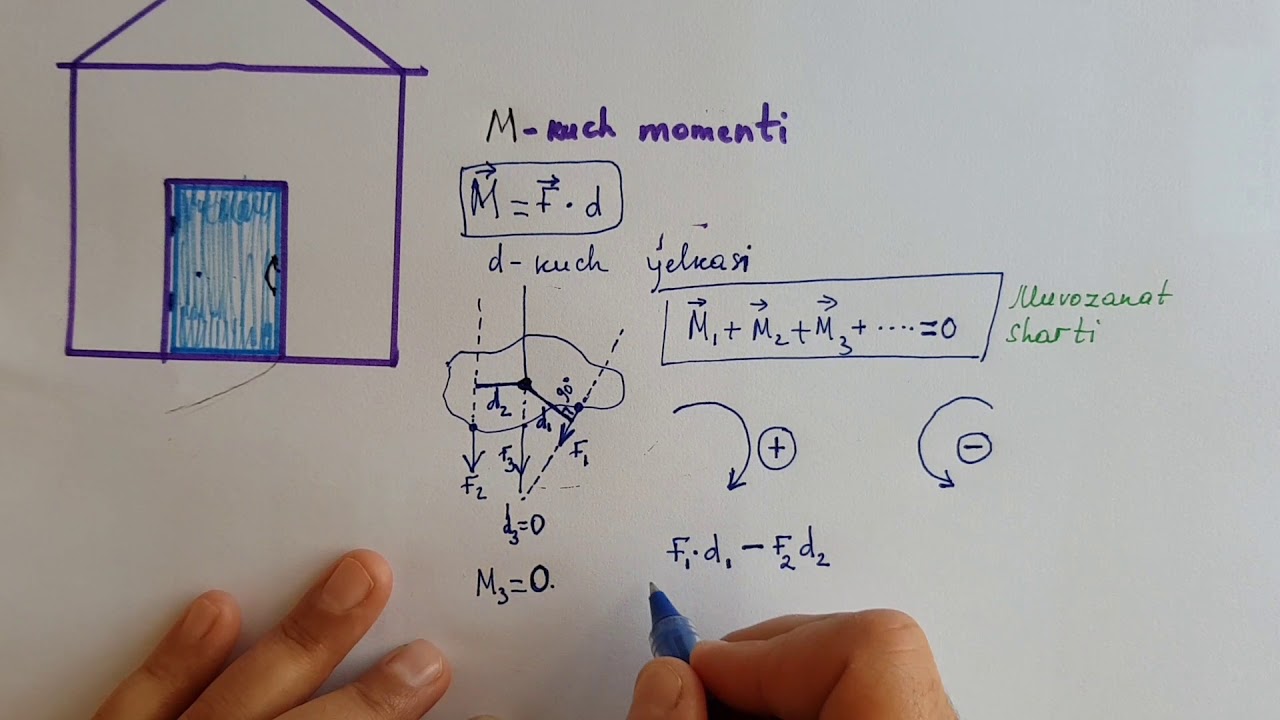 M-kuch momenti
M⃗ = F⃗ · d
d-kuch yelkasi
M⃗₁ + M⃗₂ + M⃗₃ + ····· = 0
Muvozanat
sharti
90°
d₂
d₁
F₁
F₃
F₂
d₃=0
+
−
F₁·d₁ − F₂d₂
M₃=0.